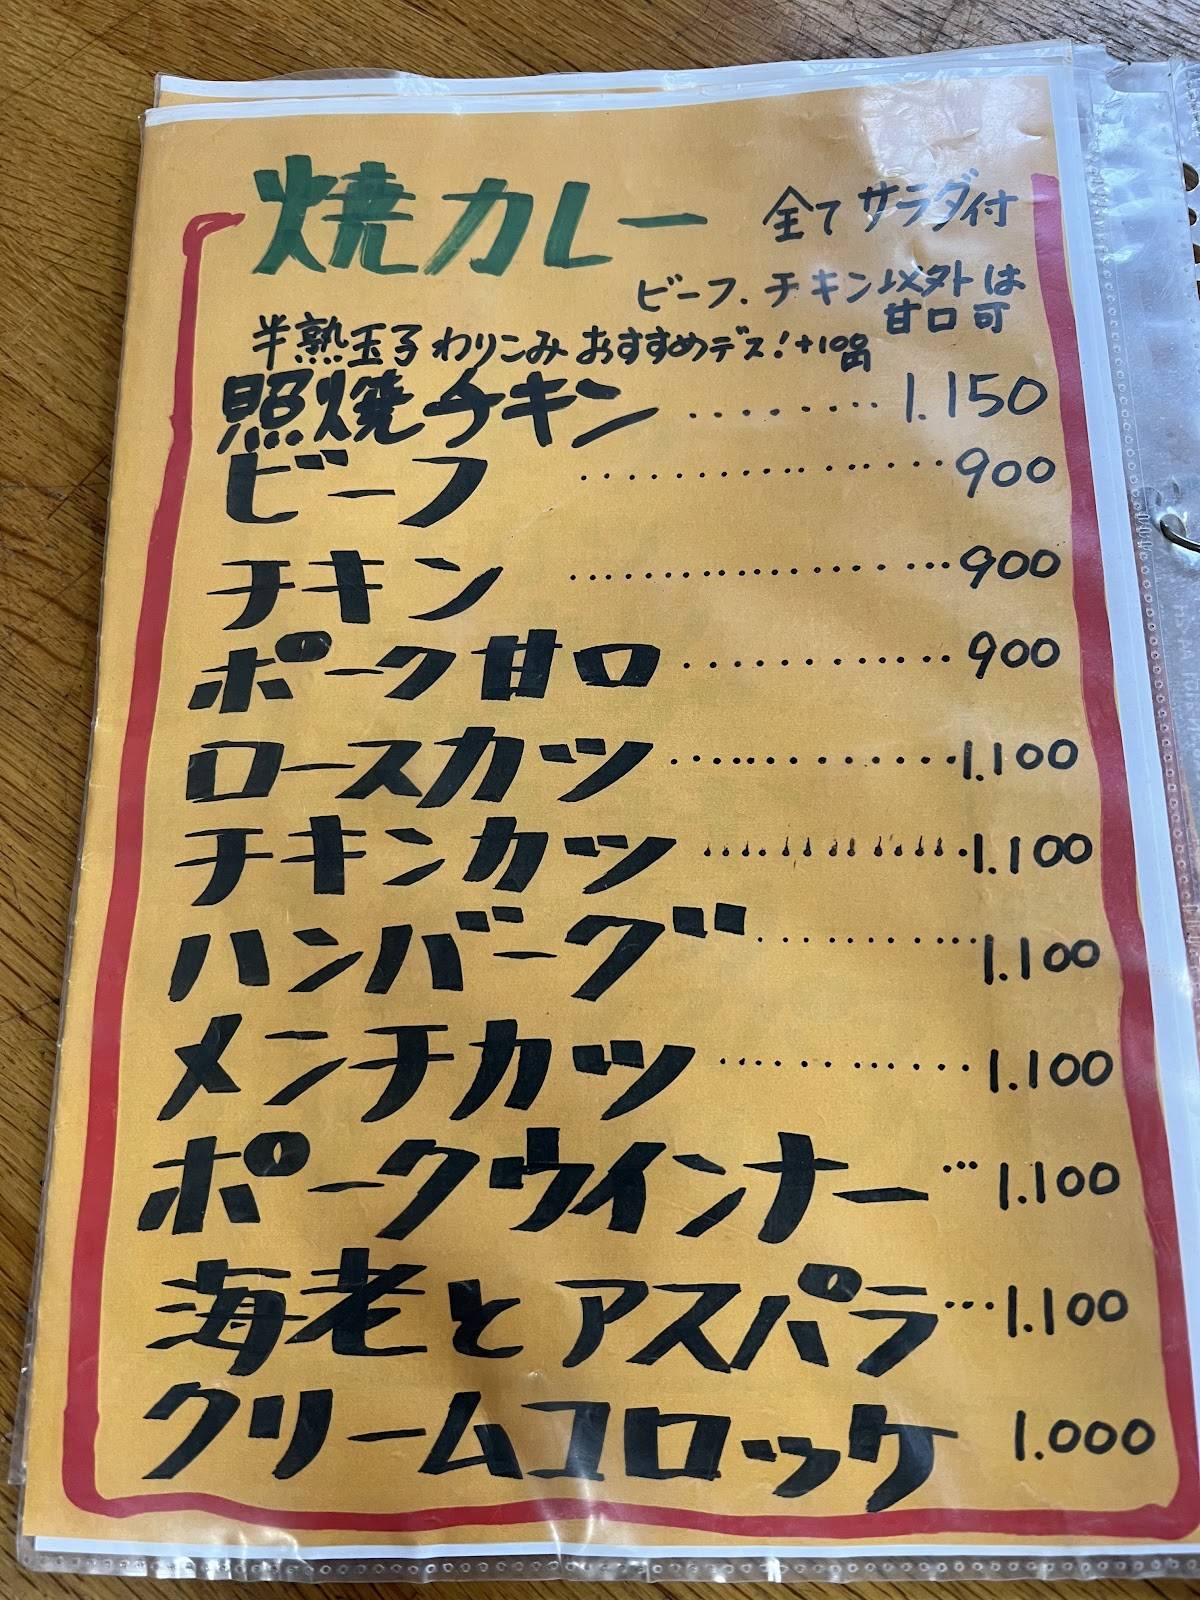 焼カレー 全てサラダ付
ビーフ、チキン以外は
甘口可
半熟玉子 わりこみ おすすめデス!+100円
照焼チキン ........ 1.150
ビーフ ............... 900
チキン ................ 900
ポーク甘口 ............ 900
ロースカツ .............. 1.100
チキンカツ ............ 1.100
ハンバーグ ............ 1.100
メンチカツ ............ 1.100
ポークウインナー ... 1.100
海老とアスパラ ... 1.100
クリームコロッケ 1.000